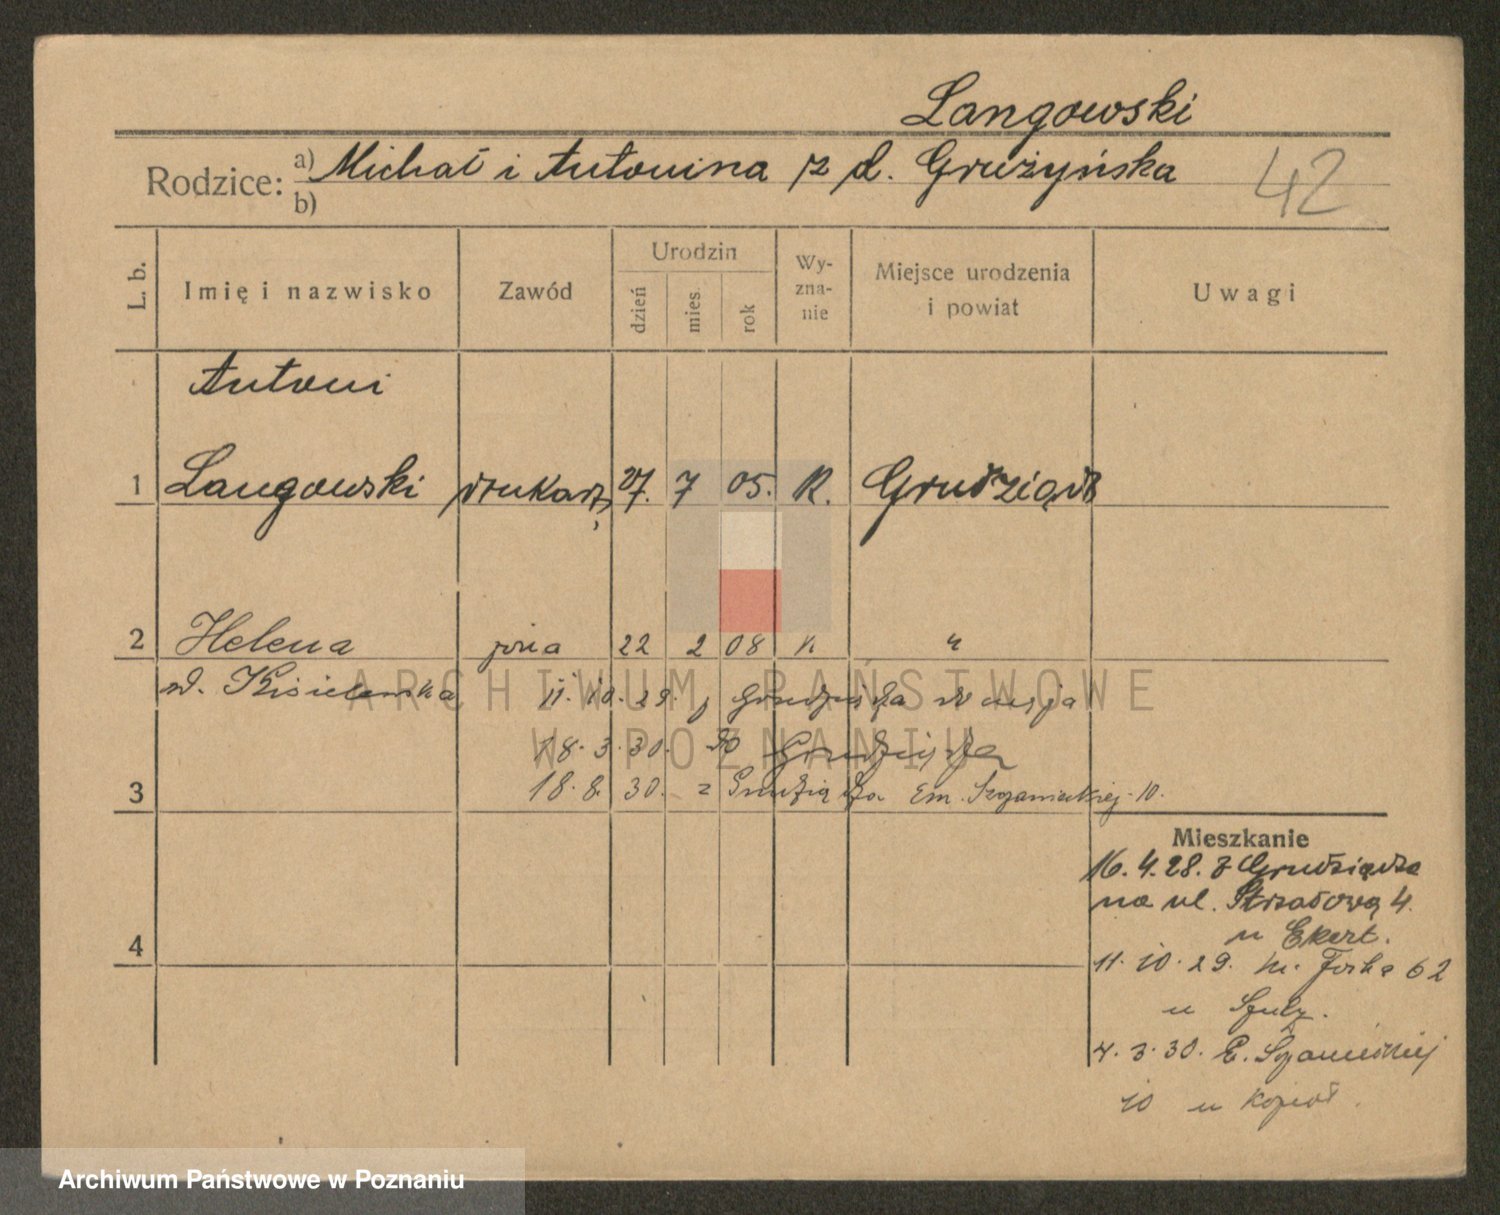 Langowski
Rodzice: a) Michał i Antonina z d. Grużyńska
b)
42
L. b.
Imię i nazwisko
Zawód
Urodzin
dzień
mies.
rok
Wy-
zna-
nie
Miejsce urodzenia
i powiat
Uwagi
Antoni
1 Langowski drukarz 27. 7 05. R. Grudziądz
2 Helena żona 22 2 08 R. "
11. 10. 29. z Grudziądza
18. 3. 30. do Grudziądza
3 18. 8. 30. z Grudziądza Em. Szczanieckiej 10.
Mieszkanie
16. 4. 28. z Grudziądza
na ul. Strzałową 4.
u Ekert.
4
11. 10. 29. 62
u
4. 3. 30. E. Szczanieckiej
10 u
ARCHIWUM PAŃSTWOWE
W POZNANIU
Archiwum Państwowe w Poznaniu